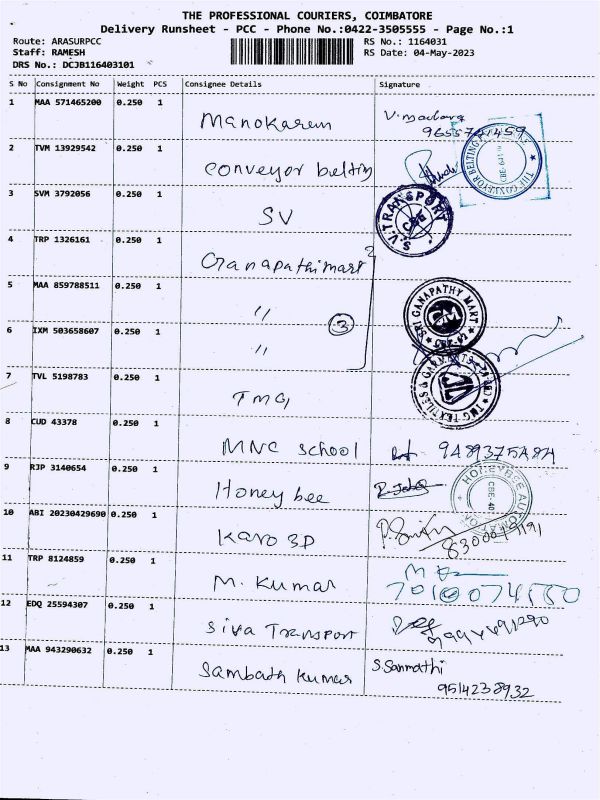 THE PROFESSIONAL COURIERS, COIMBATORE
Delivery Runsheet - PCC - Phone No.:0422-3505555 - Page No.:1
Route: ARASURPCC RS No.: 1164031
Staff: RAMESH RS Date: 04-May-2023
DRS No.: DCJB116403101
S No Consignment No Weight PCS Consignee Details Signature
1 MAA 571465200 0.250 1 Manokaram V. madara
2 TVM 13929542 0.250 1 conveyor belting THE CONVEYOR BELTING
3 SVM 3792056 0.250 1 SV S.V.TRANSPORT CBE
4 TRP 1326161 0.250 1 Ganapathimart
5 MAA 859788511 0.250 1 " SRI GANAPATHY MART GM
6 IXM 503658607 0.250 1 " 3
7 TVL 5198783 0.250 1 TMG TMG TEXTILES &
8 CUD 43378 0.250 1 MNC school
9 RJP 3140654 0.250 1 Honey bee HONEYBEE AUTOMATION
10 ABI 20230429690 0.250 1 Karo 3D
11 TRP 8124859 0.250 1 M. Kumar
12 EDQ 25594307 0.250 1 Siva Transport
13 MAA 943290632 0.250 1 Sambath kumar S. Sanmathi
9514238932